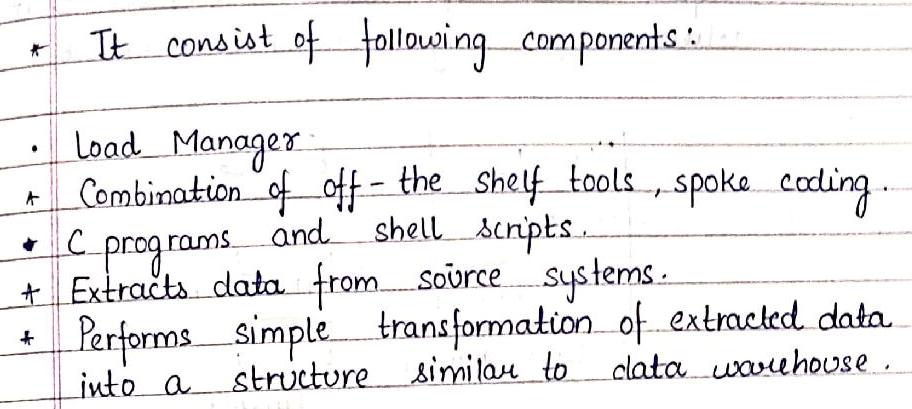 * It consist of following components:
. Load Manager
* Combination of off-the shelf tools, spoke coding.
* C programs and shell scripts.
* Extracts data from source systems.
* Performs simple transformation of extracted data
into a structure similar to data warehouse.